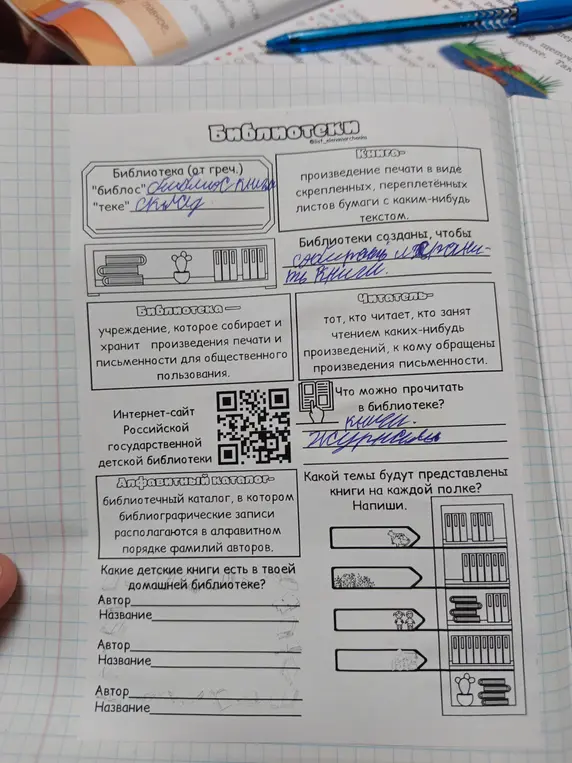 Библиотеки
Библиотека (от греч.)
"библос" библиос книга
"теке" склад
Книга-
произведение печати в виде
скрепленных, переплетённых
листов бумаги с каким-нибудь
текстом.
Библиотеки созданы, чтобы
собирать и храни-
ть книги.
Библиотека —
учреждение, которое собирает и
хранит произведения печати и
письменности для общественного
пользования.
Читатель-
тот, кто читает, кто занят
чтением каких-нибудь
произведений, к кому обращены
произведения письменности.
Интернет-сайт
Российской
государственной
детской библиотеки
Что можно прочитать
в библиотеке?
книги.
журналы
Алфавитный каталог-
библиотечный каталог, в котором
библиографические записи
располагаются в алфавитном
порядке фамилий авторов.
Какой темы будут представлены
книги на каждой полке?
Напиши.
Какие детские книги есть в твоей
домашней библиотеке?
Автор
Название
Автор
Название
Автор
Название